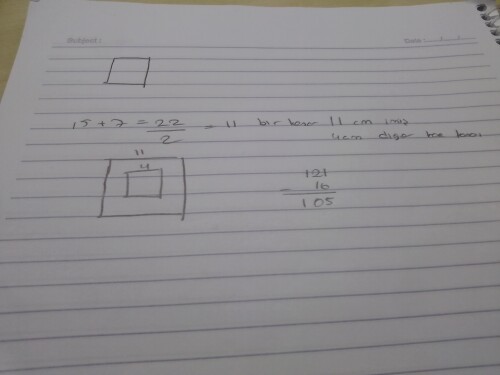 Subject :
Date : / /
15 + 7 = 22 / 2 = 11 bir kenar 11 cm imiş
4 cm diğer kenar
11
4
121
- 16
105